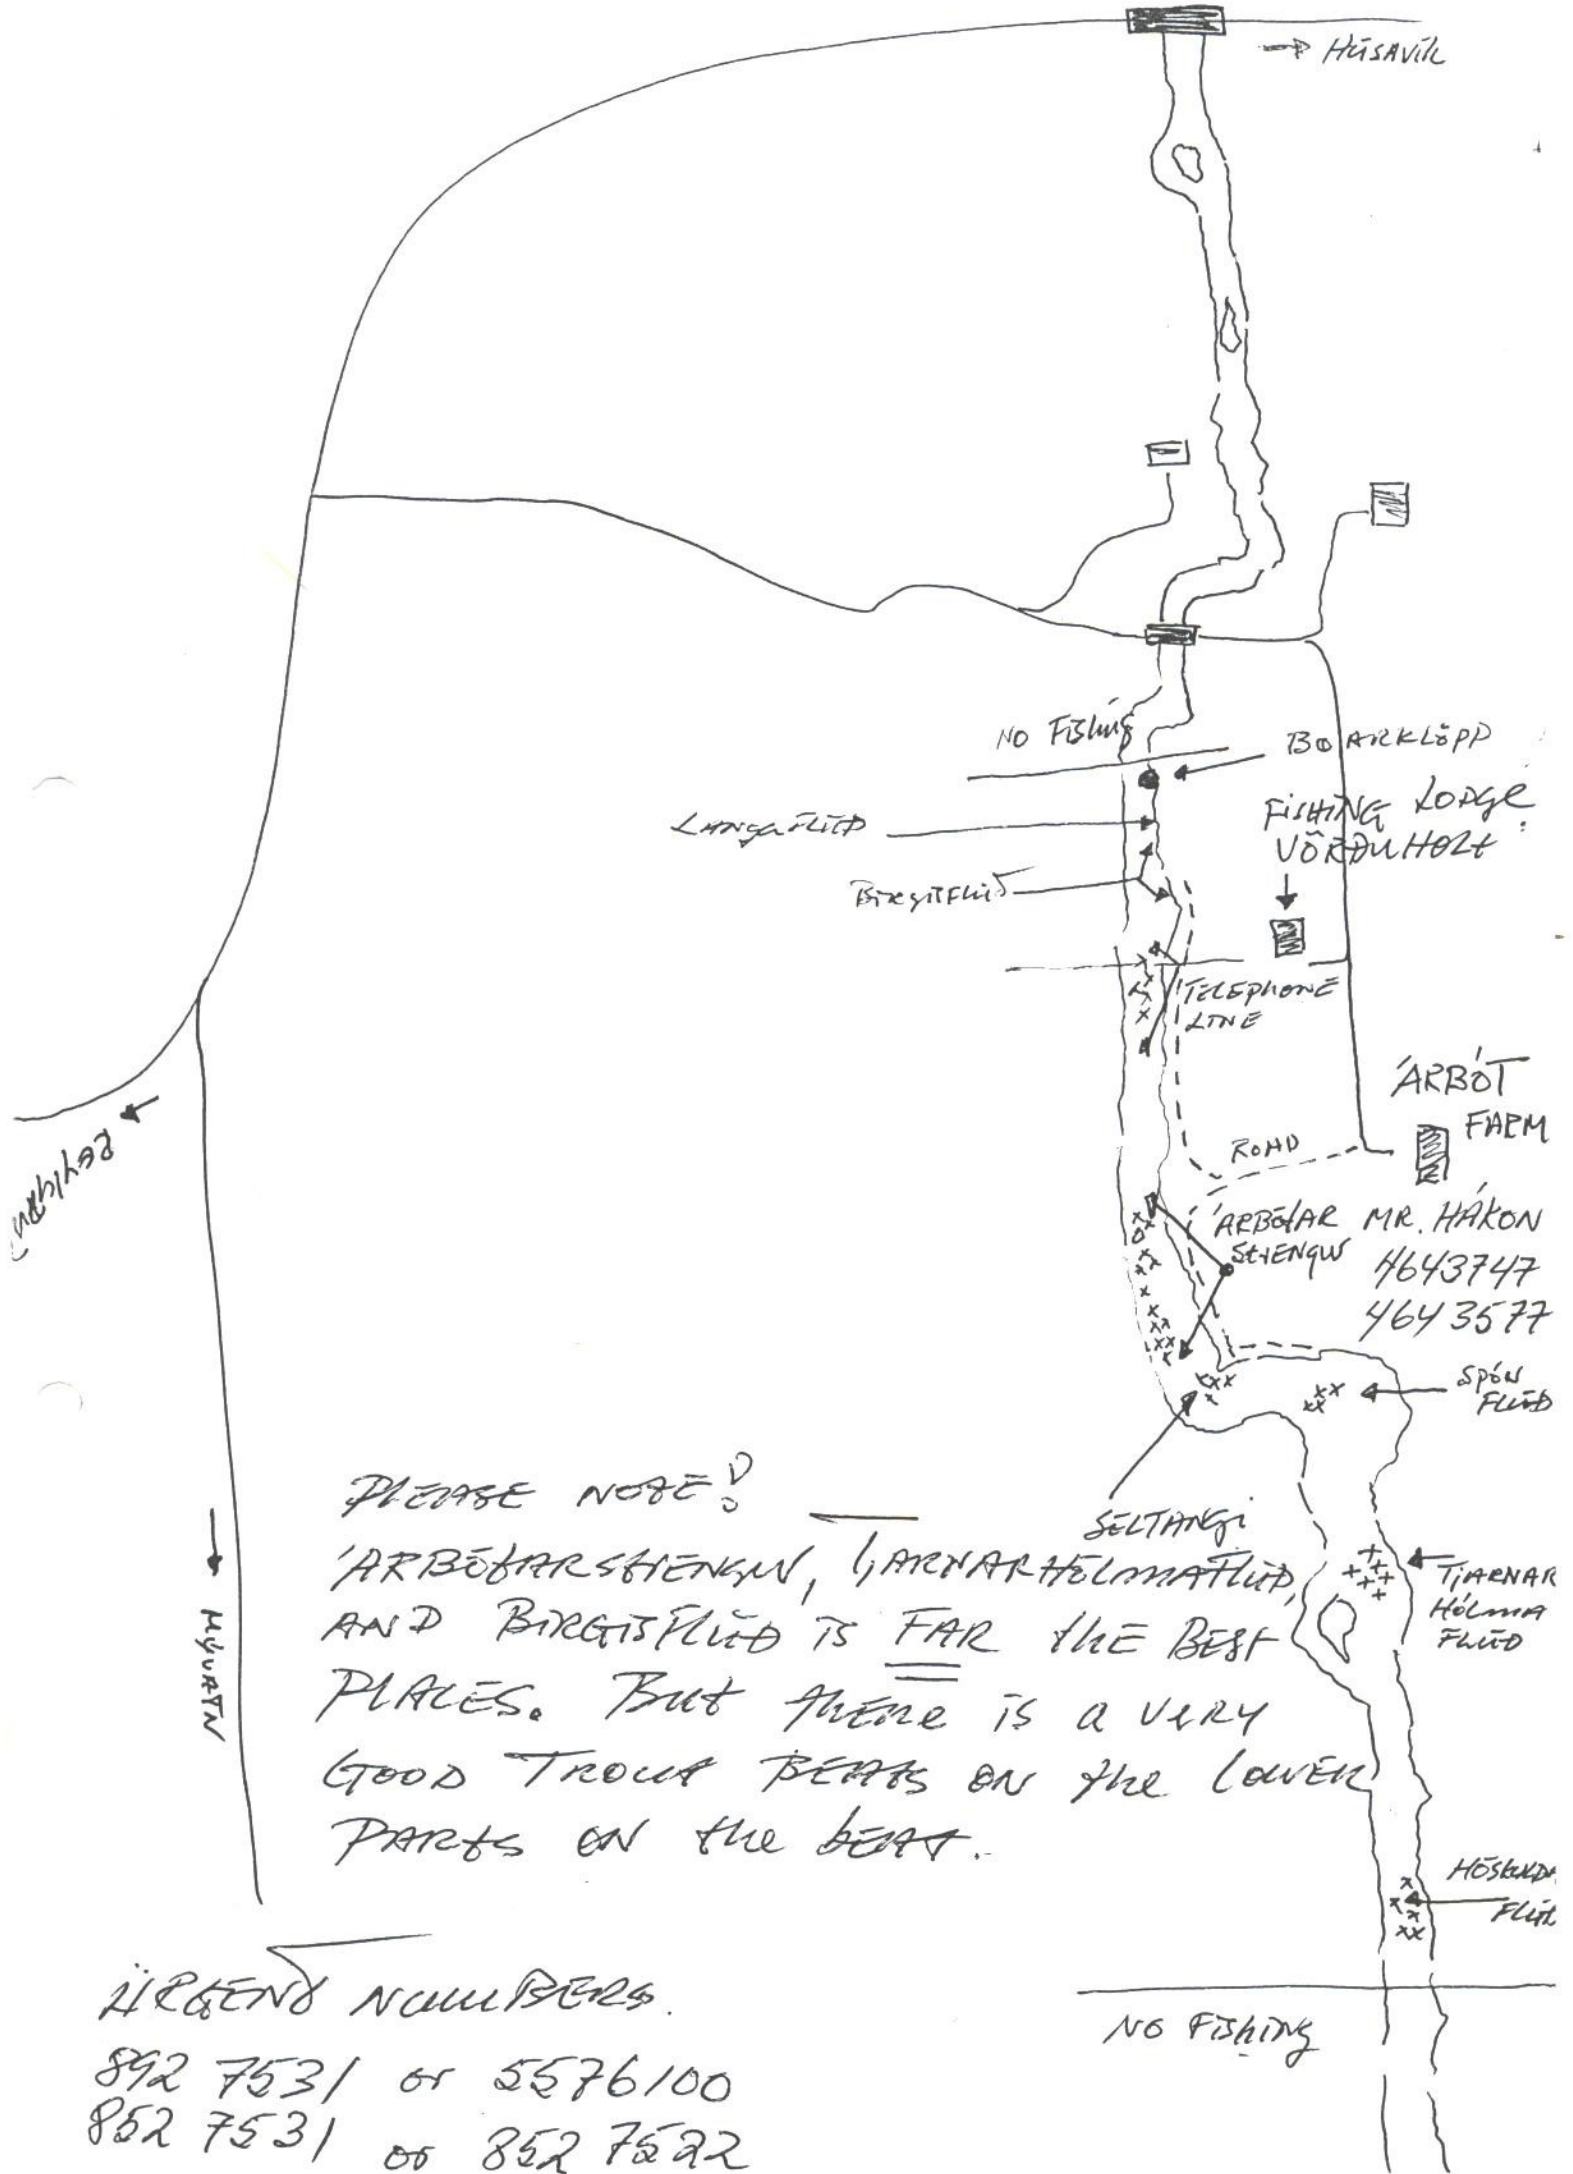 → HÚSAVÍK
NO FishiNg
BOARKLÖPP
LANGAFLÚÐ
FiSHiNG LODGE
VÖRÐUHOLt
BiRGisFLúÐ
TELEPHONE
LINE
ÁRBÓT
FARM
ROAD
ÁRBÓtAR
StrENGUR
MR. HÁKON
4643747
4643577
SPÓN
FLÚÐ
SELTANGi
TjARNAR
HÓLMA
FLÚÐ
MÝVATN
PLEASE NOTE!
ÁRBÓtARStrENGUR, tjARNARHÓLMAFLÚÐ,
AND BiRGisFLÚÐ iS FAR the BEST
PLACES. But thERe iS a VeRY
GOOD TROUt BEAtS ON the LOWER
PARtS ON the bEAt.
HÖSKULDA
FLÚÐ
NO FishiNg
URGENt NUMBERS.
892 7531 or 5576100
852 7531 or 852 7522